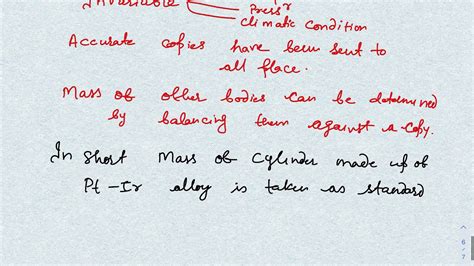 Invariable
Press^r
Climatic Condition
Accurate copies have been sent to
all place.
Mass of other bodies can be determined
by balancing them against a copy.
In short Mass of cylinder made up of
Pt-Ir alloy is taken as standard
6/7